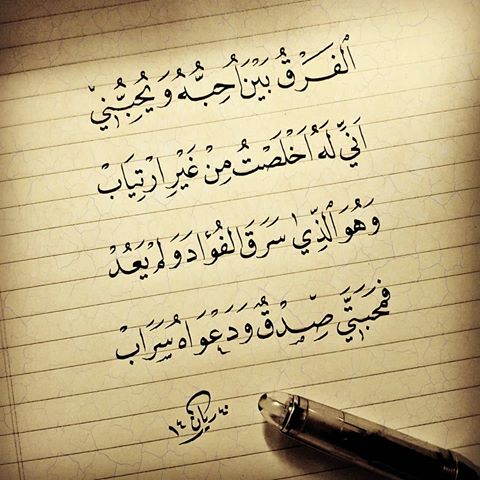 الفَرْقُ بَيْنَ اُحِبُّهُ وَ يُحِبُّنِيّ
اَنّيِّ لَهُ اَخْلَصْتُ مِنْ غَيْرِ ارْتِيَابْ
وَهُوَ الَّذِيّ سَرَقَ الفُؤَادَ وَلَمْ يَعُدْ
فَمَحَبَتَيَّ صِّدْقٌ وَ دَعْوَاهُ سَرَابْ
ريان